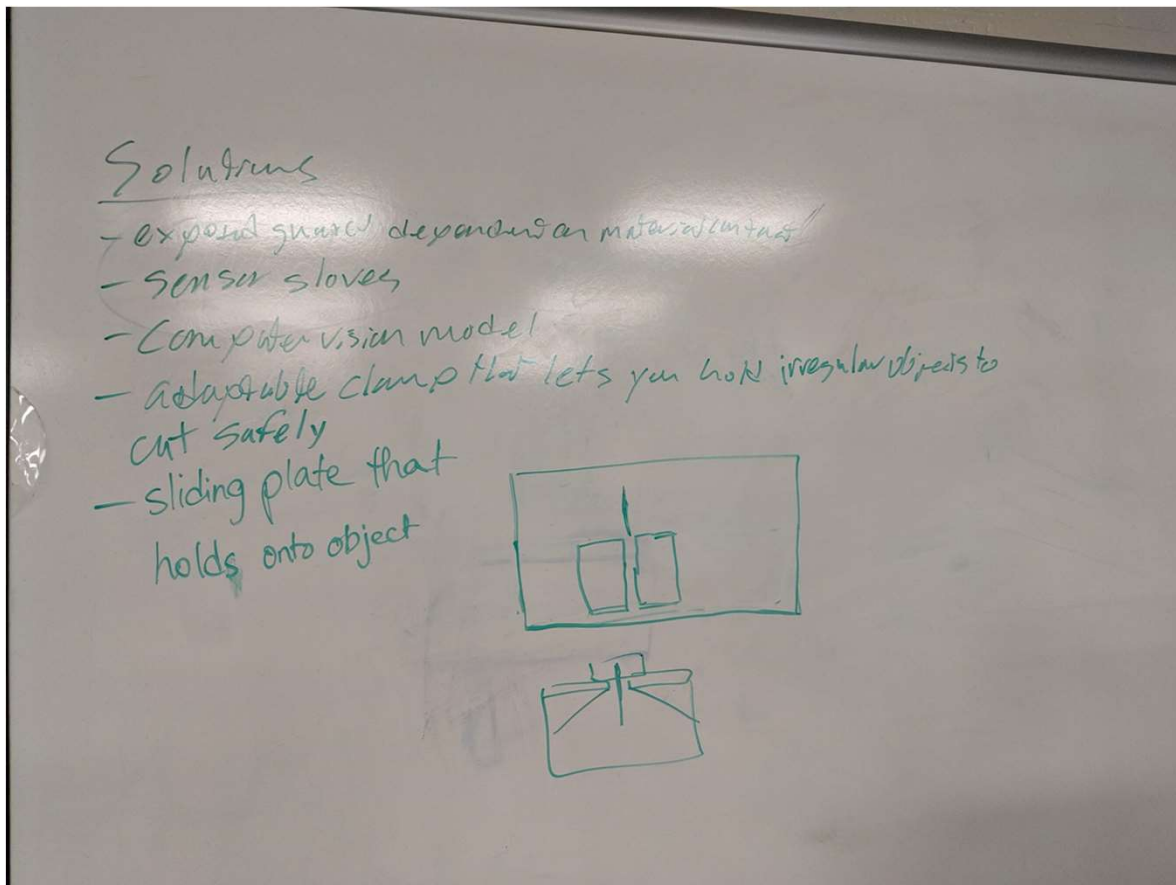 Solutions
- expand guard dependent on material contact
- sensor gloves
- Computer vision model
- adaptable clamp that lets you hold irregular objects to
cut safely
- sliding plate that
holds onto object